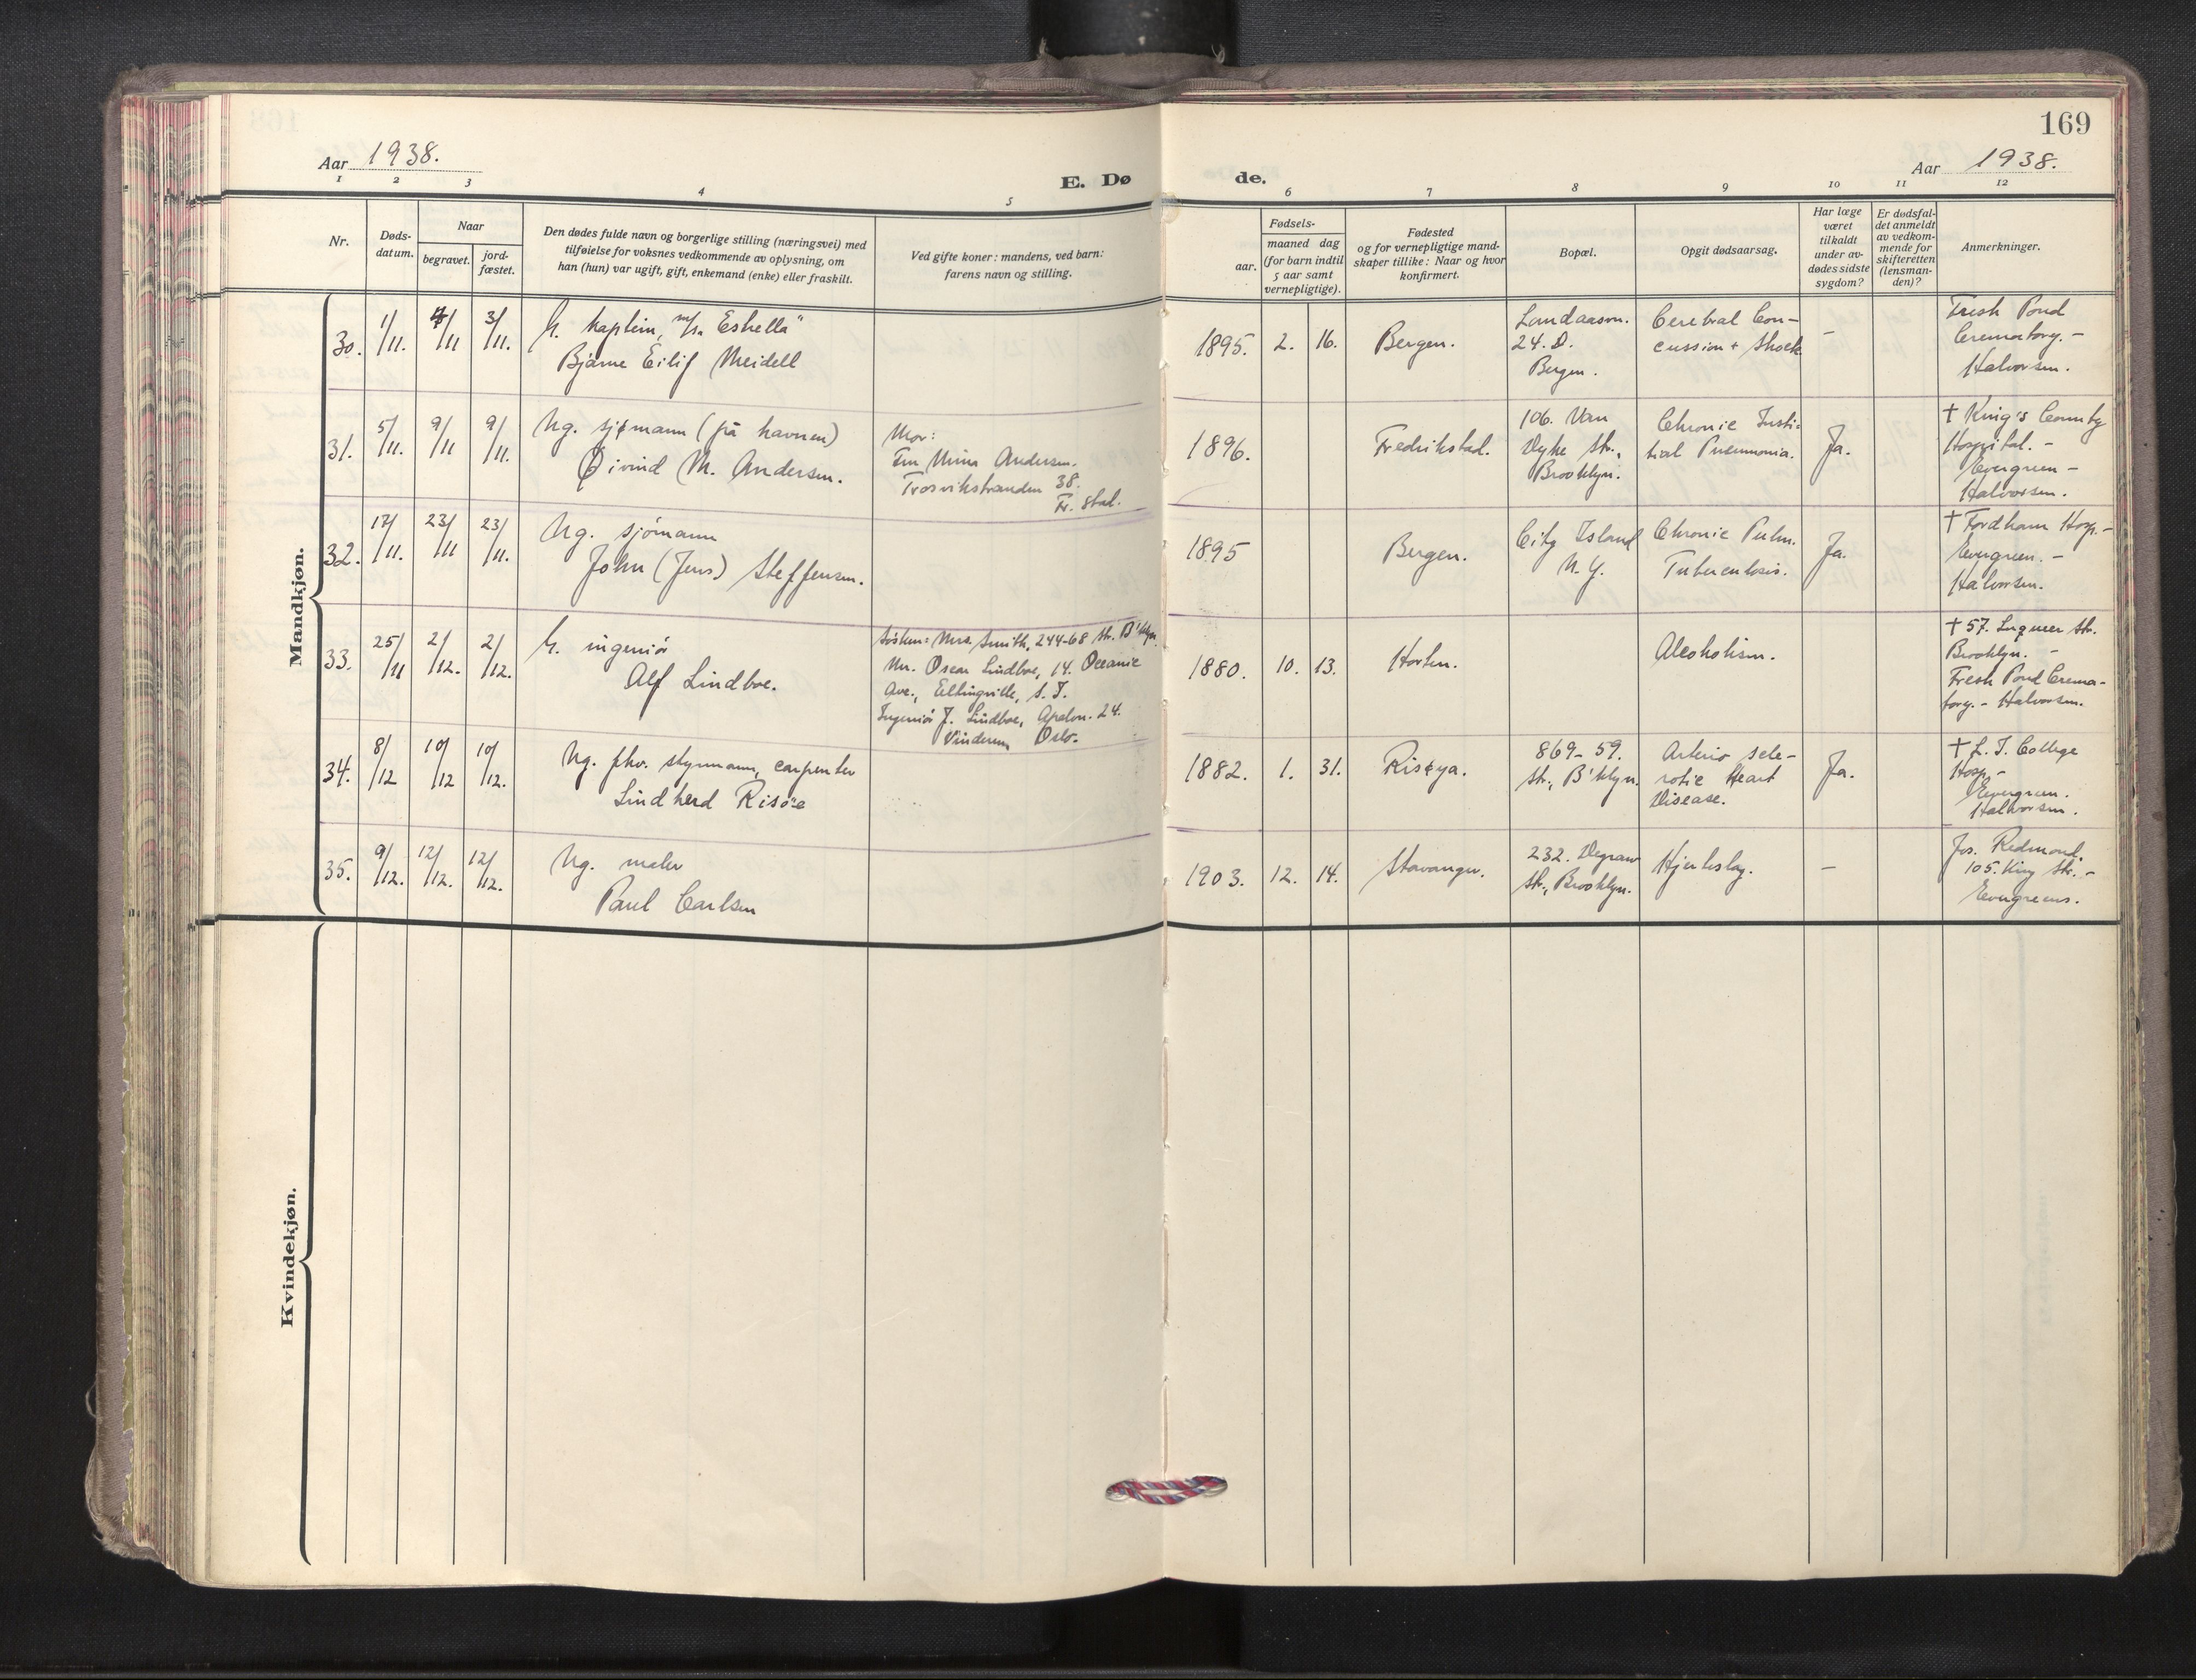 169
Aar 1938.
E. Døde.
Aar 1938.
1 2 3 4 5 6 7 8 9 10 11 12
Nr.
Døds-
datum.
Naar
begravet.
jord-
fæstet.
Den dødes fulde navn og borgerlige stilling (næringsvei) med
tilføielse for voksnes vedkommende av oplysning, om
han (hun) var ugift, gift, enkemand (enke) eller fraskilt.
Ved gifte koner: mandens, ved barn:
farens navn og stilling.
Fødsels-
aar.
maaned dag
(for barn indtil
5 aar samt
vernepligtige).
Fødested
og for vernepligtige mand-
skaper tillike: Naar og hvor
konfirmert.
Bopæl.
Opgit dødsaarsag.
Har læge
været
tilkaldt
under av-
dødes sidste
sygdom?
Er dødsfal-
det anmeldt
av vedkom-
mende for
skifteretten
(lensman-
den)?
Anmerkninger.
Mandkjøn.
30.
1/11.
4/11
3/11.
G. kaptein, m/s. "Estrella"
Bjarne Eilif Meidell
1895. 2. 16.
Bergen.
Landaasvn.
24. D.
Bergen.
Cerebral Con-
cussion + Shock
–
Fresh Pond
Crematory. –
Halvorsen.
31.
5/11.
9/11
9/11.
Ug. sjømann (på havnen)
Øivind M. Andersen.
Mor:
Fru Mina Andersen.
Trosvikstranden 38.
Fr. stad.
1896.
Fredrikstad.
106. Van
Dyke Str.,
Brooklyn.
Chronic Insti-
tial Pneumonia.
Ja.
† King's County
Hospital. –
Evergreen –
Halvorsen.
32.
17/11.
23/11
23/11.
Ug. sjömann
John (Jens) Steffensen.
1895
Bergen.
City Island
N.Y.
Chronic Pulm.
Tuberculosis.
Ja.
† Fordham Hosp. –
Evergreen. –
Halvorsen.
33.
25/11
2/12.
2/12.
G. ingeniör
Alf Lindboe.
Søsken: Mrs. Smith, 244-68 Str. B'klyn.
Mr. Oscar Lindboe, 14. Oceanic
Ave., Eltingville, S. I.
Ingeniör J. Lindboe, 24.
Vinderen Oslo.
1880. 10. 13.
Horten.
Alcoholism.
† 57. Str.
Brooklyn. –
Fresh Pond Crema-
tory. – Halvorsen.
34.
8/12
10/12
10/12.
Ug. fhv. styrmann, carpenter
Lindherd Risöe
1882. 1. 31.
Risøya.
869-59.
Str., B'klyn.
Arterio scle-
rotic Heart
Disease.
Ja.
† L. I. College
Hosp. –
Evergreen.
Halvorsen.
35.
9/12.
12/12.
12/12.
Ug. maler
Paul Carlsen
1903. 12. 14.
Stavanger.
232. Degraw
Str., Brooklyn.
Hjerteslag.
–
Jos. Redmond.
105. King Str. –
Evergreens.
Kvindekjøn.